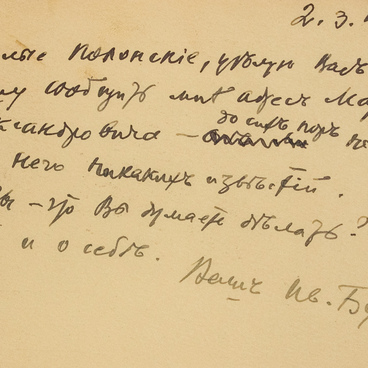 2.3.
лые Полонскіе, цѣлую Васъ
шу сообщить мнѣ адресъ Ма
ксандровича — до сихъ поръ не
него никакихъ извѣстій.
Вы — что Вы думаете дѣлать?
и о себѣ.
Вашъ Ив. Бу